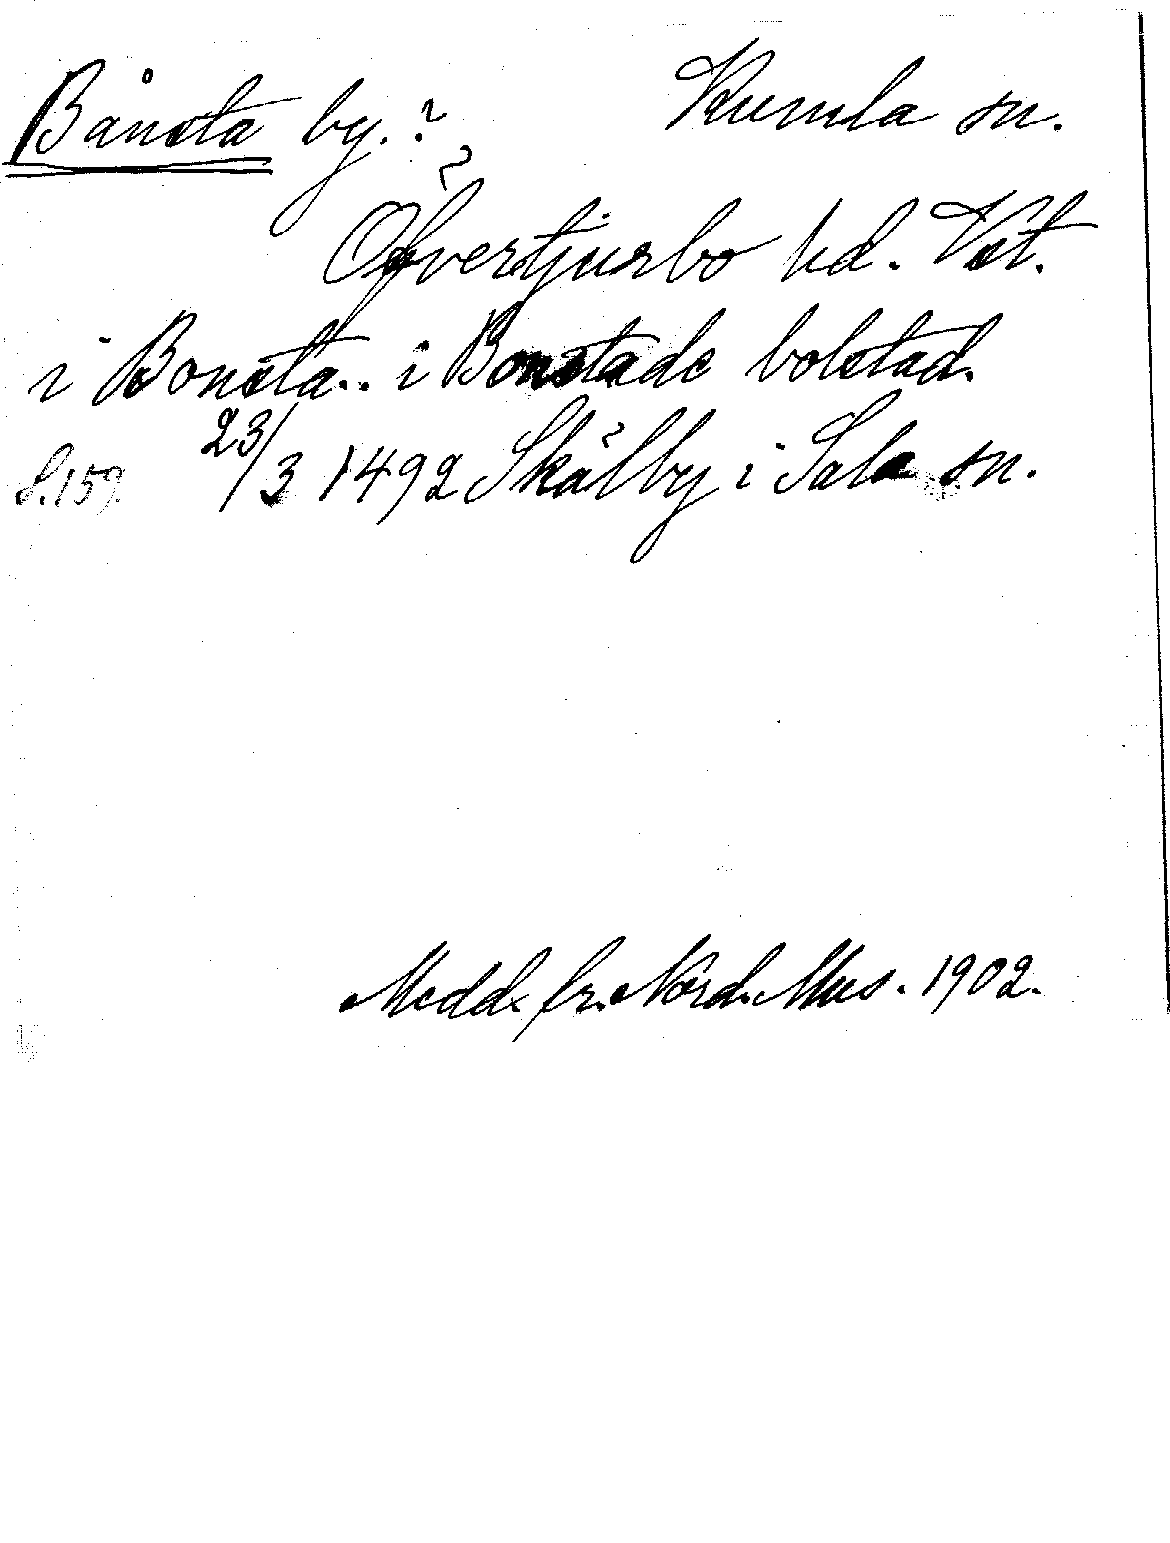 Bånsta by.? Kumla sn.
Öfvertjurbo hd. Vst.
i Bonsta.. i Bonstade bolstad.
S.159. 23/3 1492 Skålby i Sala sn.
Medd. fr. Nord. Mus. 1902.